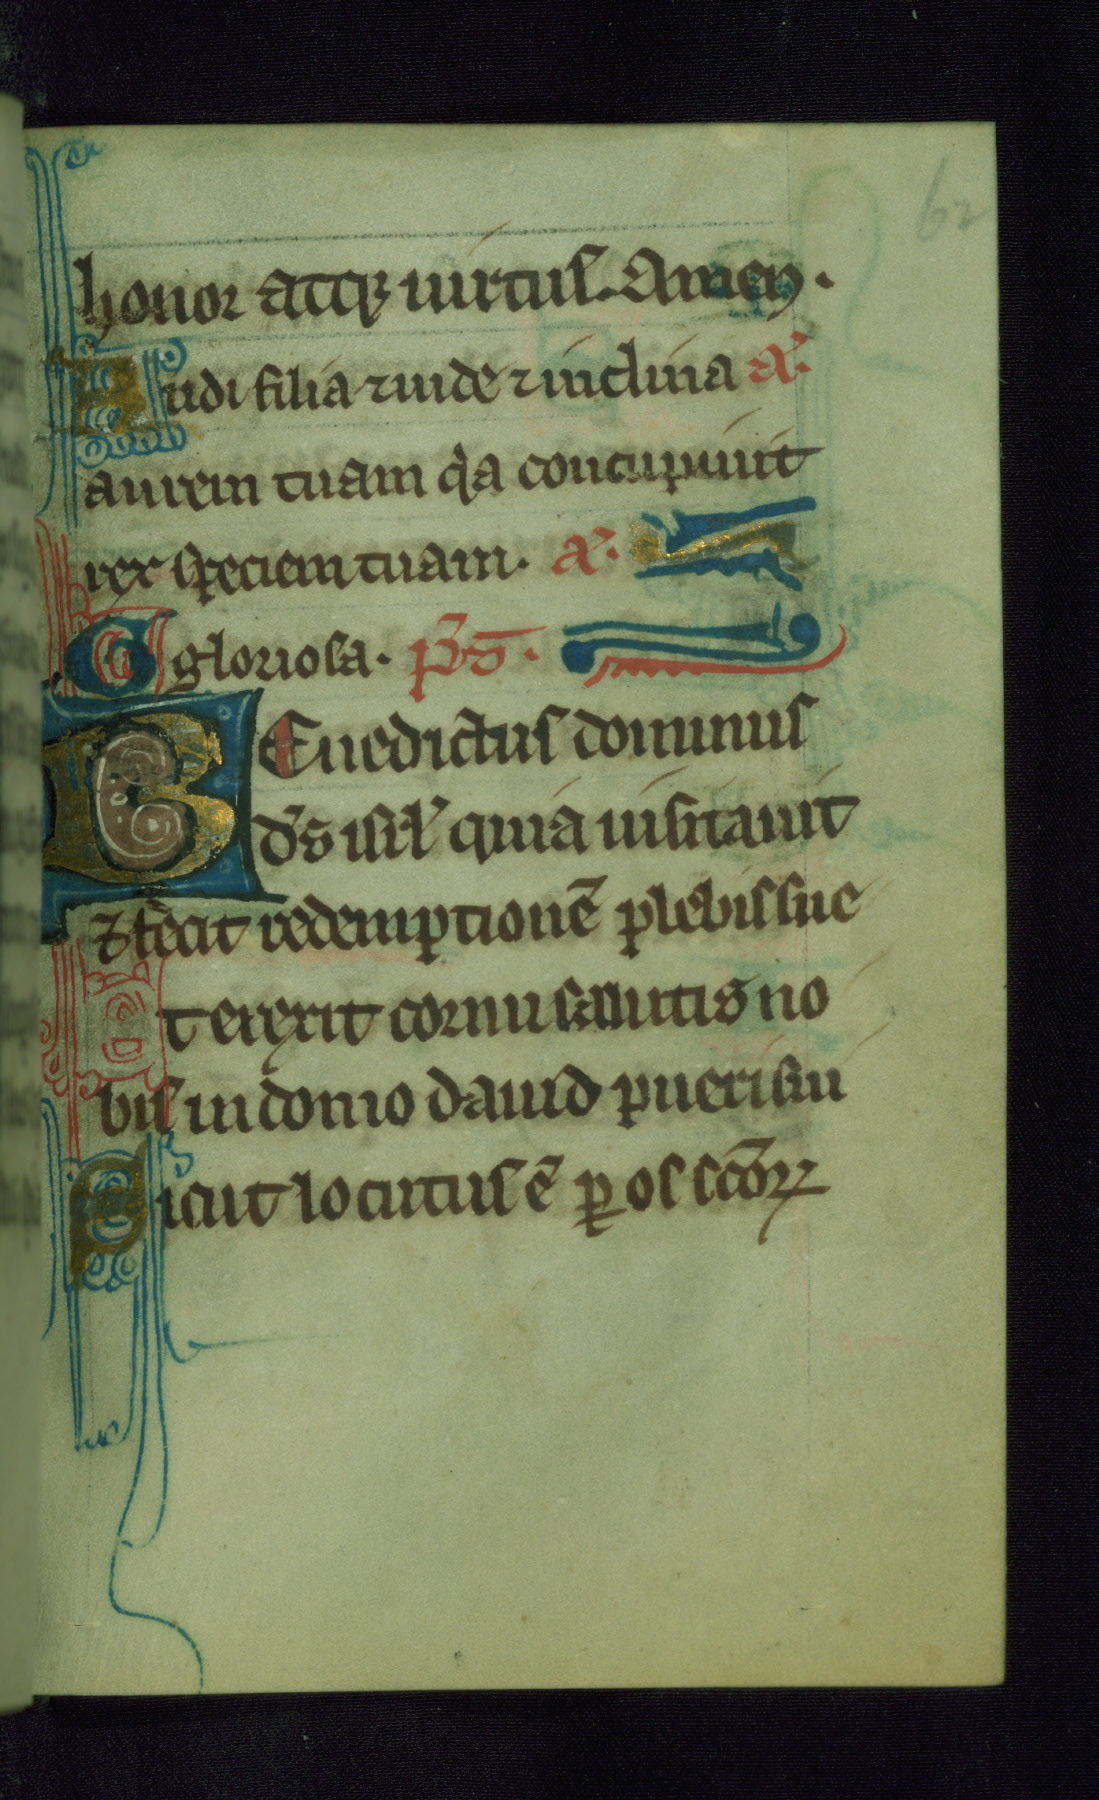 62
honor atq uirtus. Amen.
Audi filia ⁊ uide ⁊ inclina a.
aurem tuam qa concupiuit
rex speciem tuam. a.
O gloriosa. ps.
Benedictus dominus
ds isrl quia uisitauit
⁊ fecit redemptionē plebis sue
Et erexit cornu salutis no
bis in domo dauid pueri sui
Sicut locutus ē ꝑ os scōꝝ